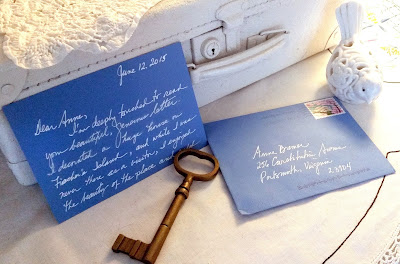 June 12, 2018
Dear Anne,
I'm deeply touched to read
your beautiful, generous letter.
I decorated a huge house on
Island, and while I was
never there as a visitor, I enjoyed
the beauty of the place and
Anne Bremer
256 Avenue
Portsmouth, Virginia
23704